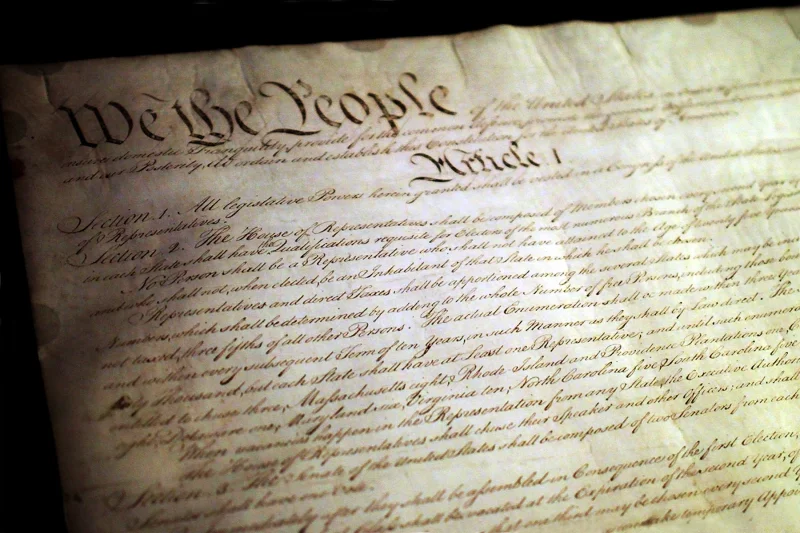 We the People of the United States
insure domestic Tranquility, provide for the common defence,
and our Posterity, do ordain and establish this Constitution for the United States of
Article 1
Section 1. All legislative Powers herein granted shall be vested in a Congress of the
of Representatives.
Section 2. The House of Representatives shall be composed of Members chosen every second Year
in each State shall have the Qualifications requisite for Electors of the most numerous Branch of the State
No Person shall be a Representative who shall not have attained to the Age of twenty five
and who shall not, when elected, be an Inhabitant of that State in which he shall be chosen.
Representatives and direct Taxes shall be apportioned among the several States which may be
Numbers, which shall be determined by adding to the whole Number of free Persons, including those
not taxed, three fifths of all other Persons. The actual Enumeration shall be made within three
and within every subsequent Term of ten Years, in such Manner as they shall by Law direct. The
thirty Thousand, but each State shall have at Least one Representative; and until such
entitled to chuse three, Massachusetts eight, Rhode Island and Providence Plantations one,
eight, Delaware one, Maryland six, Virginia ten, North Carolina five, South Carolina five,
When vacancies happen in the Representation from any State, the Executive
The House of Representatives shall chuse their Speaker and other Officers; and shall
Section 3. The Senate of the United States shall be composed of two Senators from each
Senator shall have one Vote.
Immediately after they shall be assembled in Consequence of the first Election,
shall be vacated at the Expiration of the second Year, of
that one third may be chosen every second
make temporary